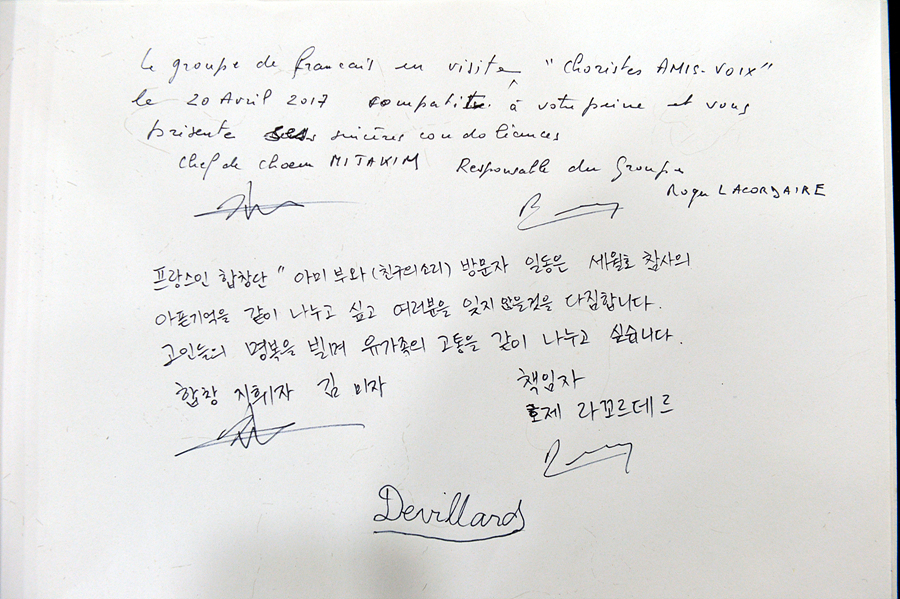 Le groupe de francais en visite "Choristes AMIS-VOIX"
le 20 Avril 2017 compatit à votre peine et vous
présente ses sincères condoléances
Chef de choeur MITAKIM Responsable du Groupe
Roger LACORDAIRE
프랑스인 합창단 " 아미 부와 (친구의 소리) 방문자 일동은 세월호 참사의
아픈기억을 같이 나누고 싶고 여러분을 잊지 않을것을 다짐합니다.
고인들의 명복을 빌며 유가족의 고통을 같이 나누고 싶습니다.
합창 지휘자 김 미자 책임자
호제 라꼬르데르
Devillard